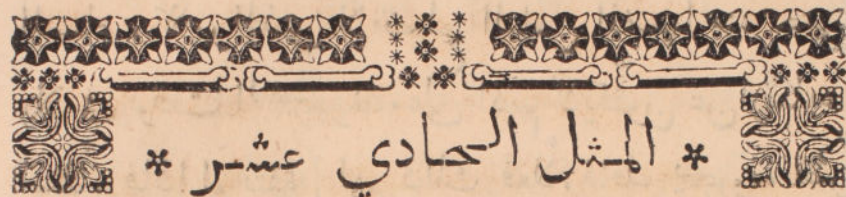 * المثل الحادي عشر *